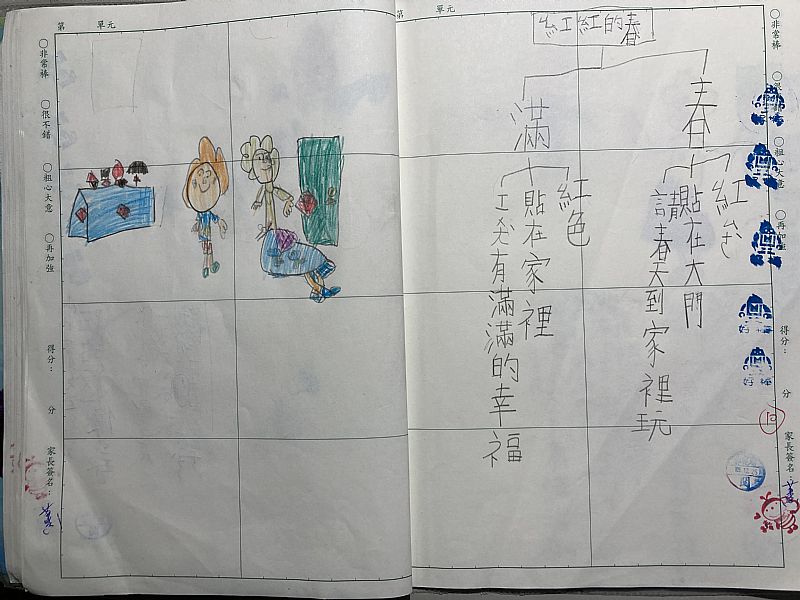 第 單元
紅紅的春
春
紅
貼在大門
請春天到家裡玩
滿
紅色
貼在家裡
有滿滿的幸福
〇非常棒
粗心大意
〇再加強
得分：
分
家長簽名：
好棒
好棒
第 單元
〇非常棒
〇很不錯
〇粗心大意
〇再加強
得分：
分
家長簽名：